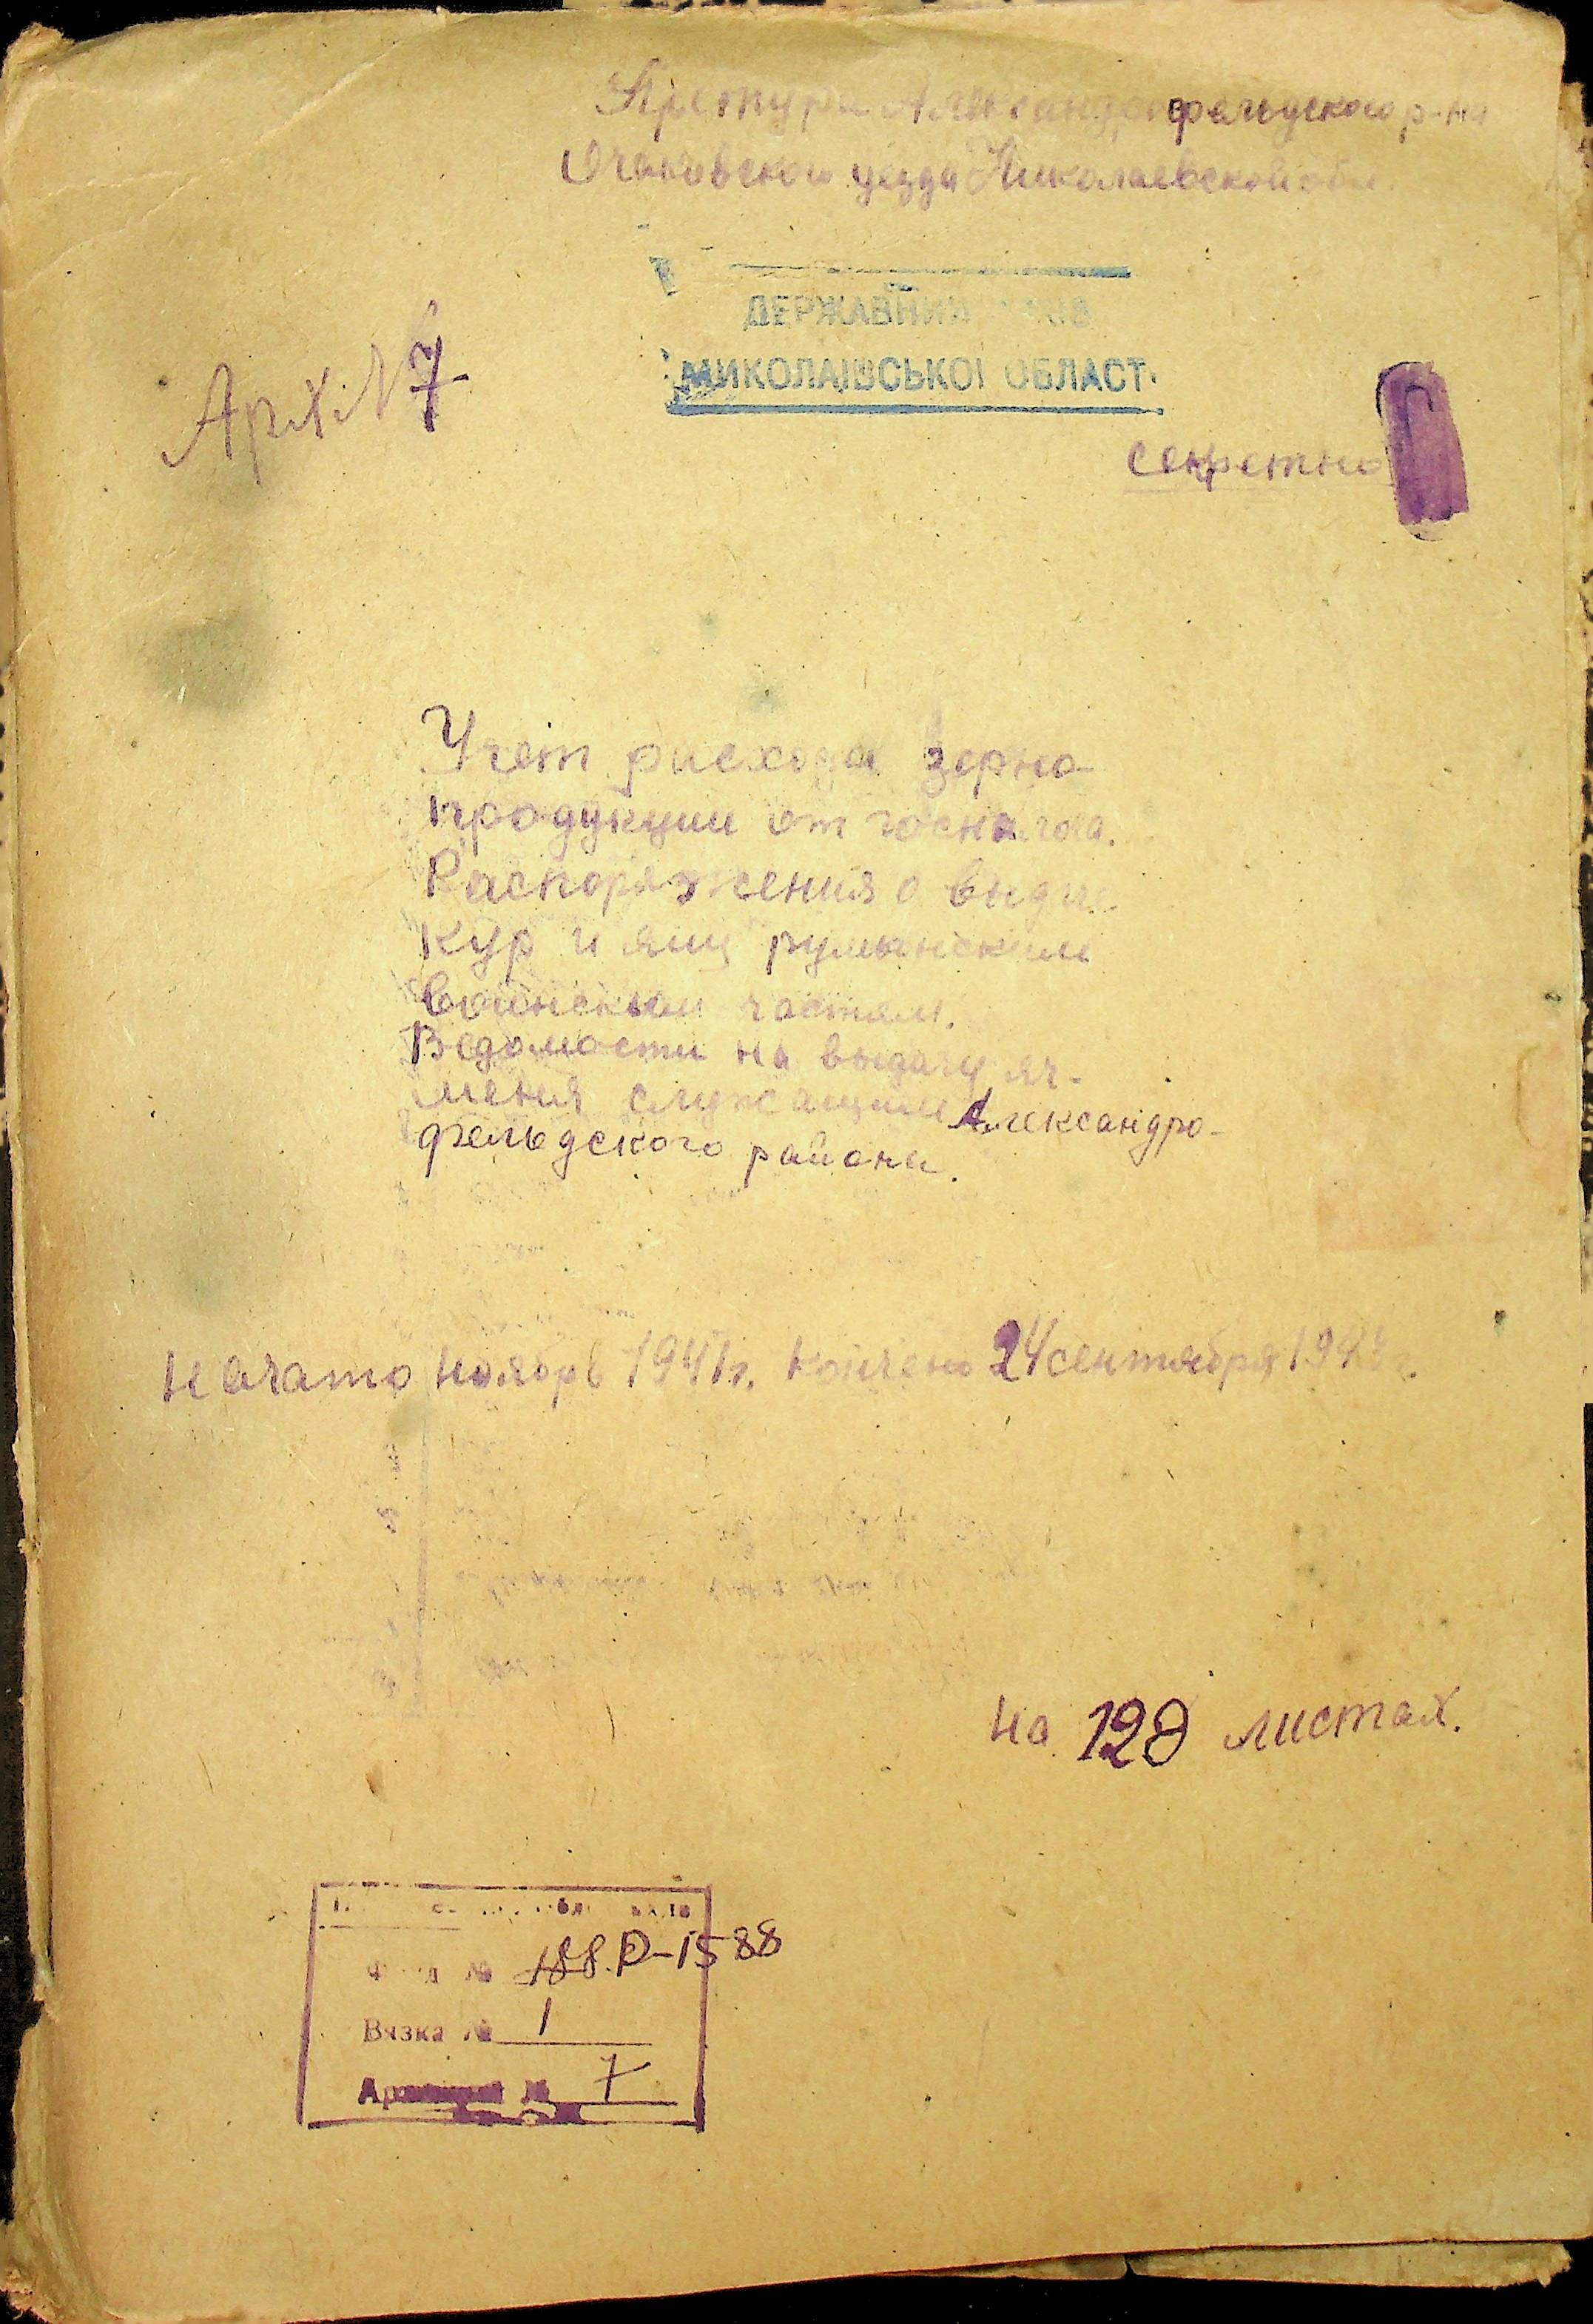 Претура Александерфельдского р-на
Очаковского уезда Николаевской обл.
ДЕРЖАВНИЙ
МИКОЛАЇВСЬКОЇ ОБЛАСТІ
Арх. № 7
секретно
Учет расхода зерно-
продукции от
Распоряжения о выдаче
кур и яиц румынским
воинским частям.
Ведомости на выдачу яч-
меня служащим Александро-
фельдского района.
Начато ноябрь 1941 г. Кончено 24 сентября 194 г.
на 128 листах.
Фонд № 188. Р-1588
Вязка № 1
Архивный № 7